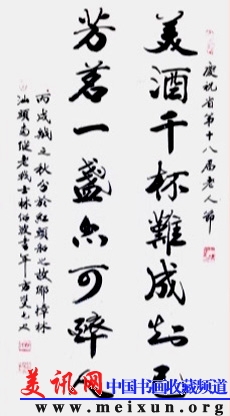 慶祝省第十八届老人節
美酒千杯難成知己
芳茗一盞亦可醉人
丙戌歲之秋分於紅頭船之故鄉樟林
汕頭 老 士林 書年方
美讯网 中国书画收藏频道
www.meixun.org